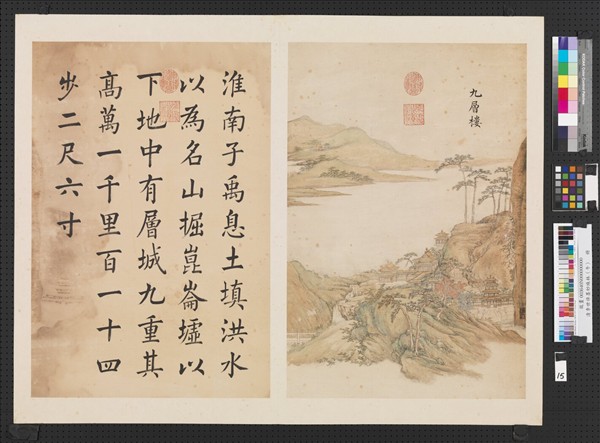 九層樓
淮南子禹息土填洪水
以為名山掘崑崙墟以
下地中有層城九重其
高萬一千里百一十四
步二尺六寸
15